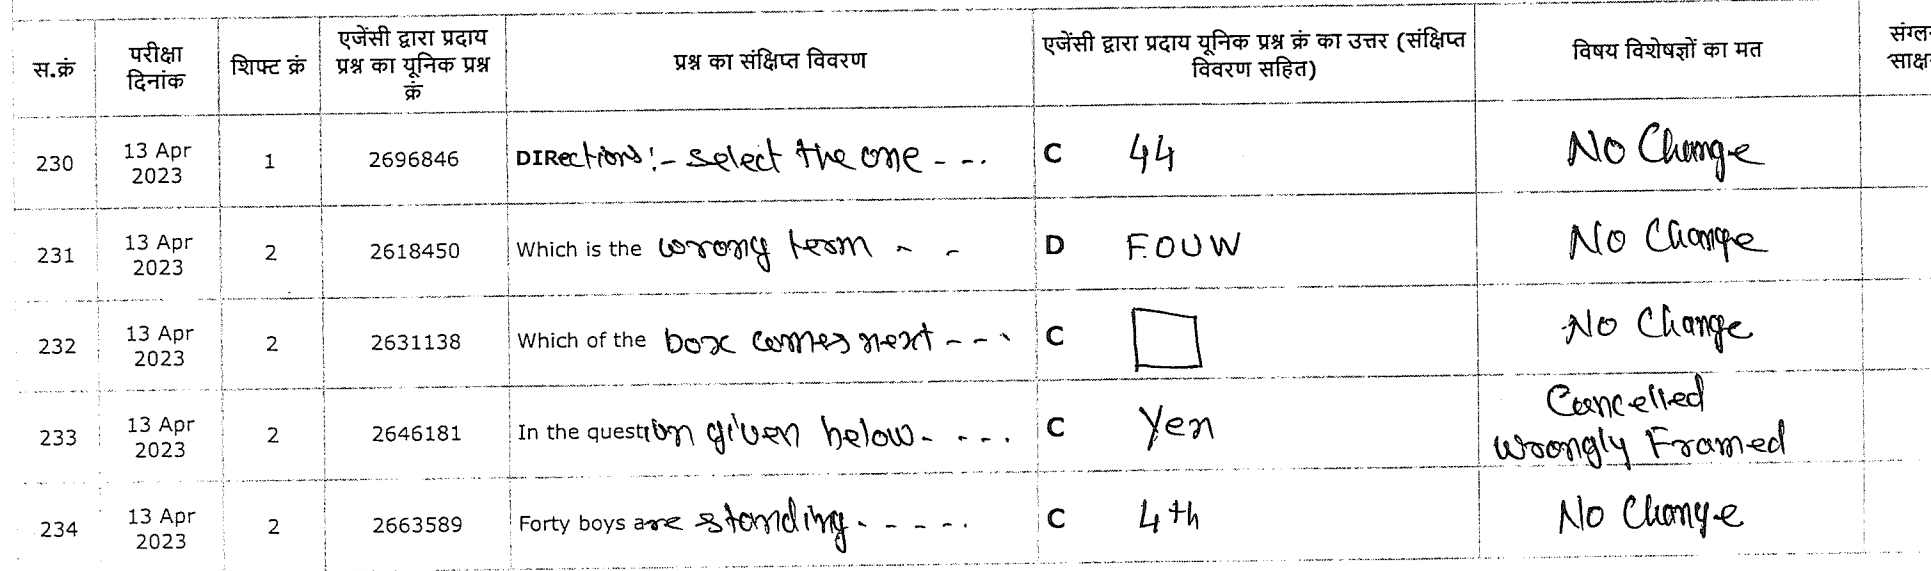 स.क्रं परीक्षा दिनांक शिफ्ट क्रं एजेंसी द्वारा प्रदाय प्रश्न का यूनिक प्रश्न क्रं प्रश्न का संक्षिप्त विवरण एजेंसी द्वारा प्रदाय यूनिक प्रश्न क्रं का उत्तर (संक्षिप्त विवरण सहित) विषय विशेषज्ञों का मत
230 13 Apr 2023 1 2696846 DIRections:- select the one - - - C 44 No Change
231 13 Apr 2023 2 2618450 Which is the wrong term - - D FOUW No Change
232 13 Apr 2023 2 2631138 Which of the box comes next - - - C No Change
233 13 Apr 2023 2 2646181 In the question given below - - - - C Yen Cancelled Wrongly Framed
234 13 Apr 2023 2 2663589 Forty boys are standing - - - - - C 4th No Change